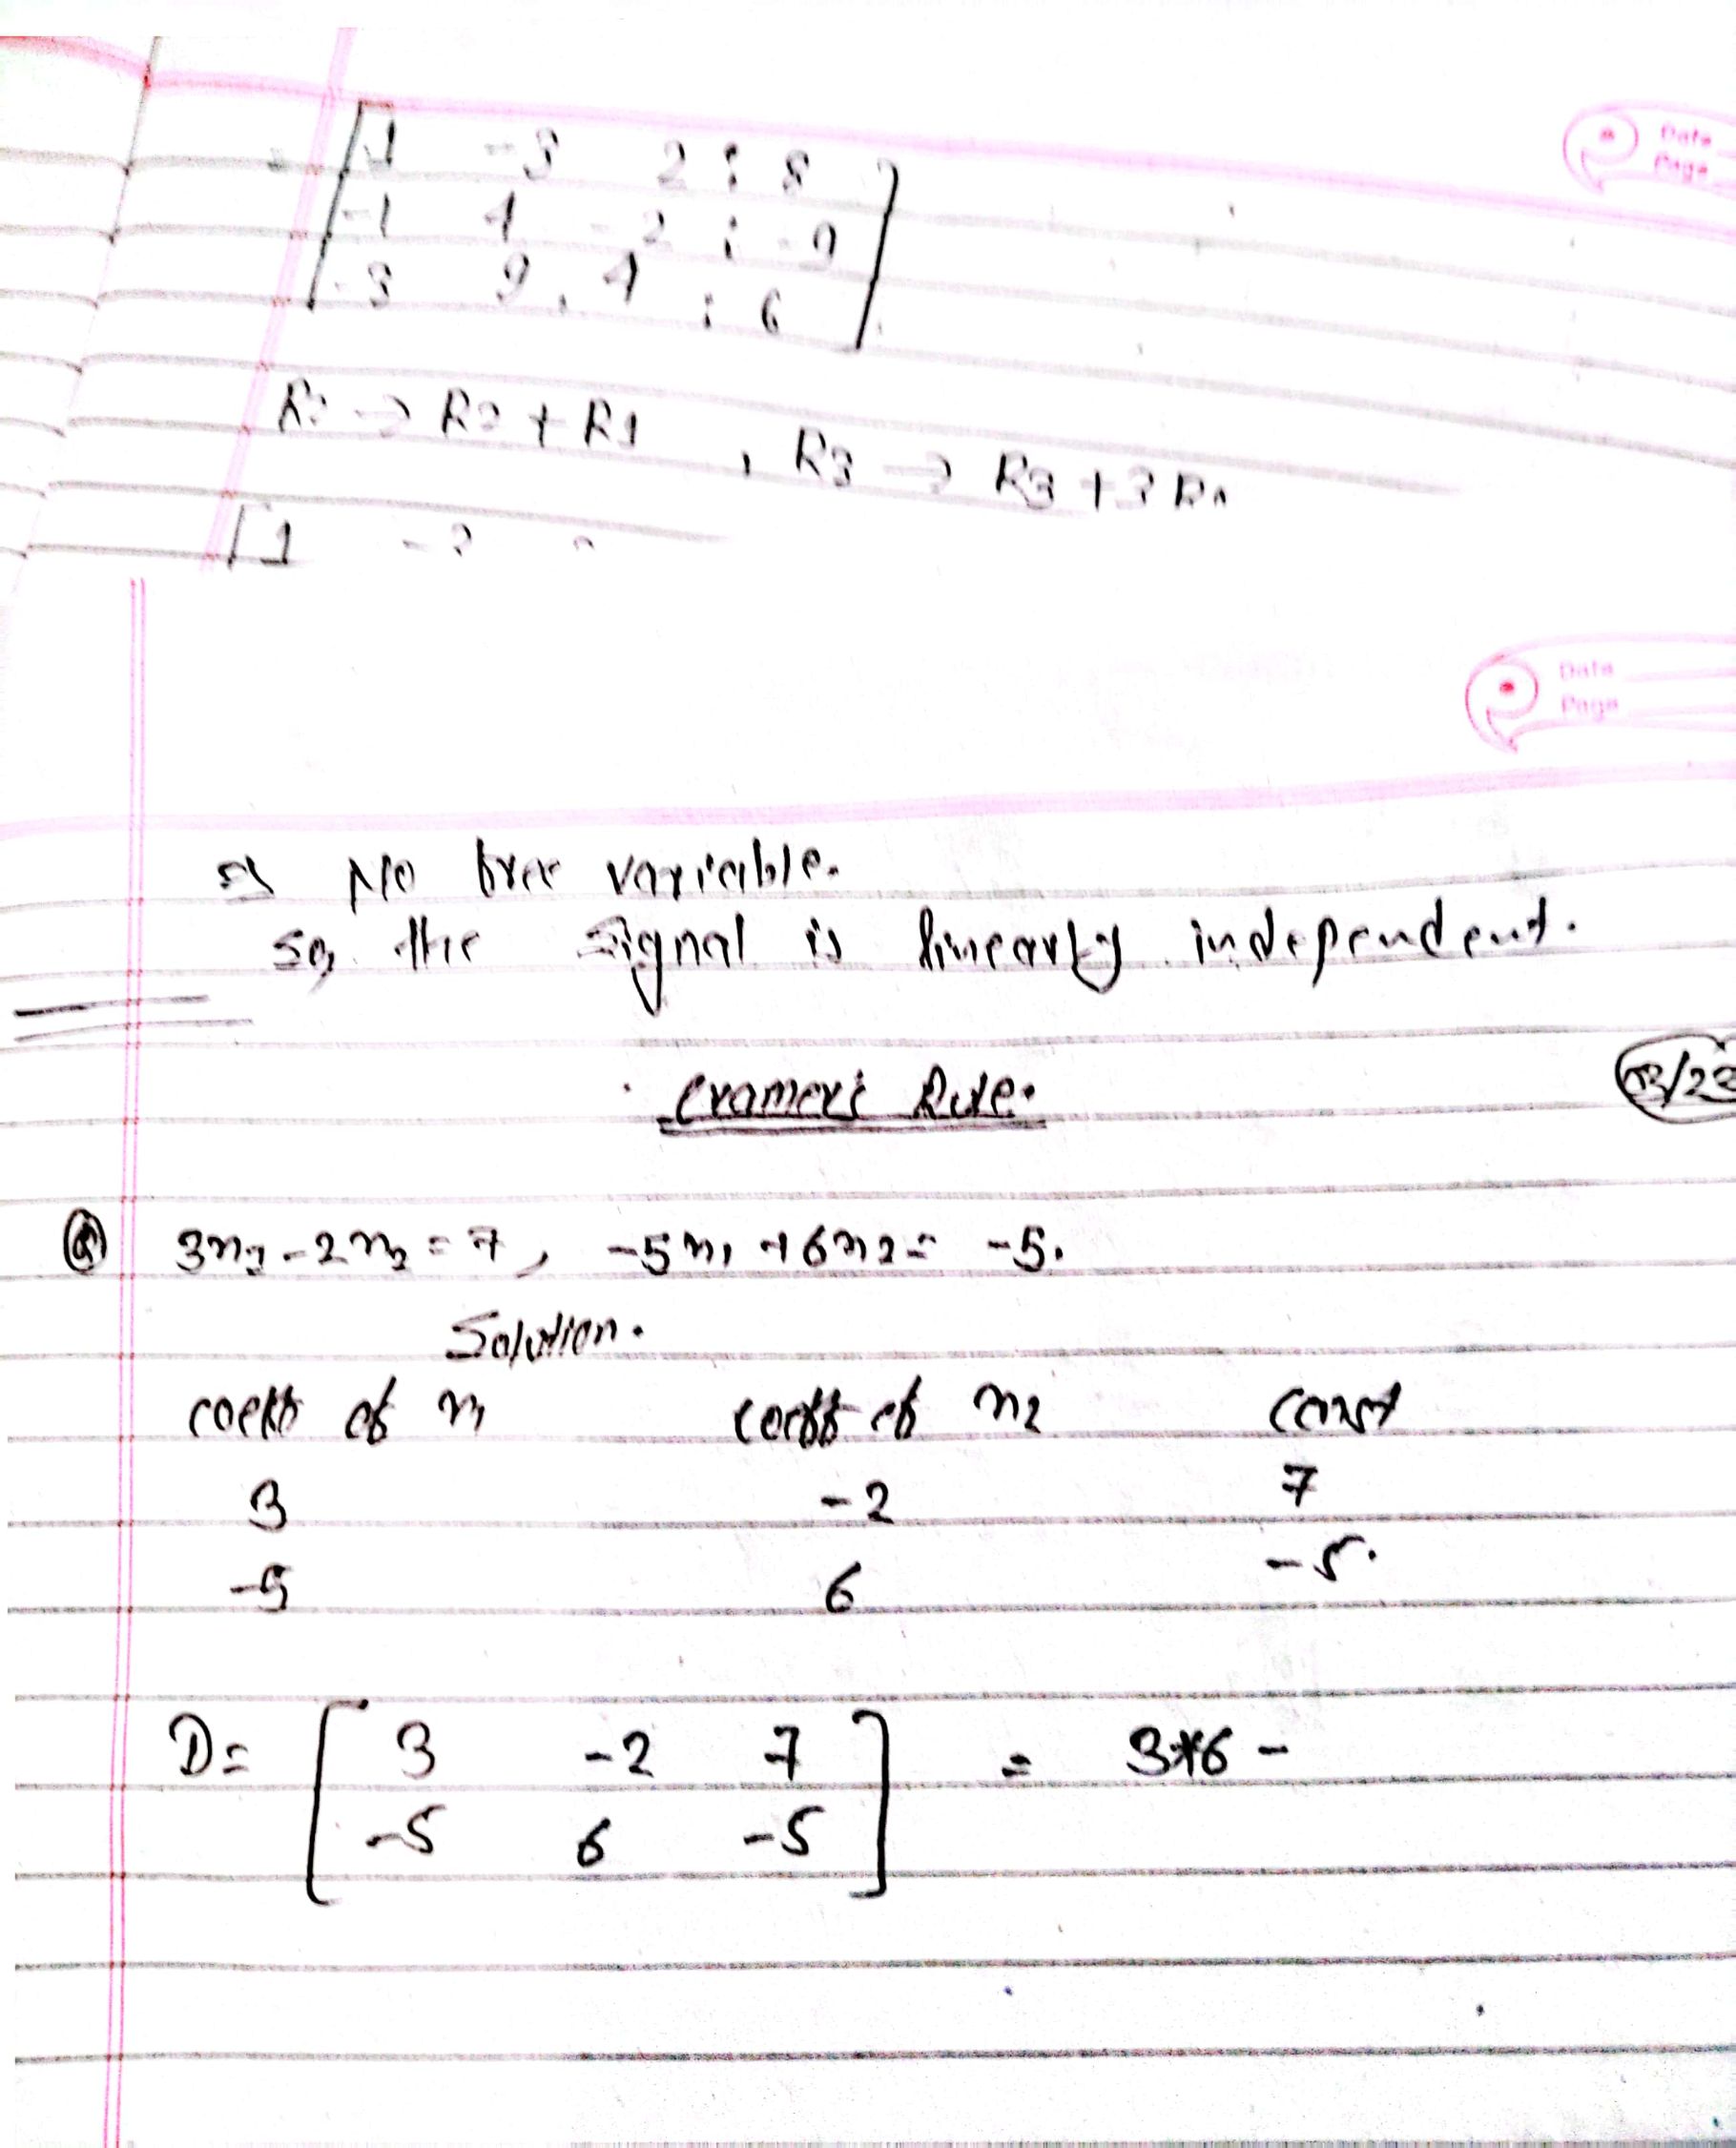 Date
Page
1 -3 2 : 8
-1 4 -2 : -9
-3 9 4 : 6
R2 → R2 + R1 , R3 → R3 + 3R1
1
Date
Page
No free variable.
so, the signal is linearly independent.
Cramer's Rule.
3x1 - 2x2 = 7, -5x1 + 6x2 = -5.
Solution.
coeff of x1 coeff of x2 const
3 -2 7
-5 6 -5.
D= [ 3 -2 7 ] = 3*6 -
-5 6 -5